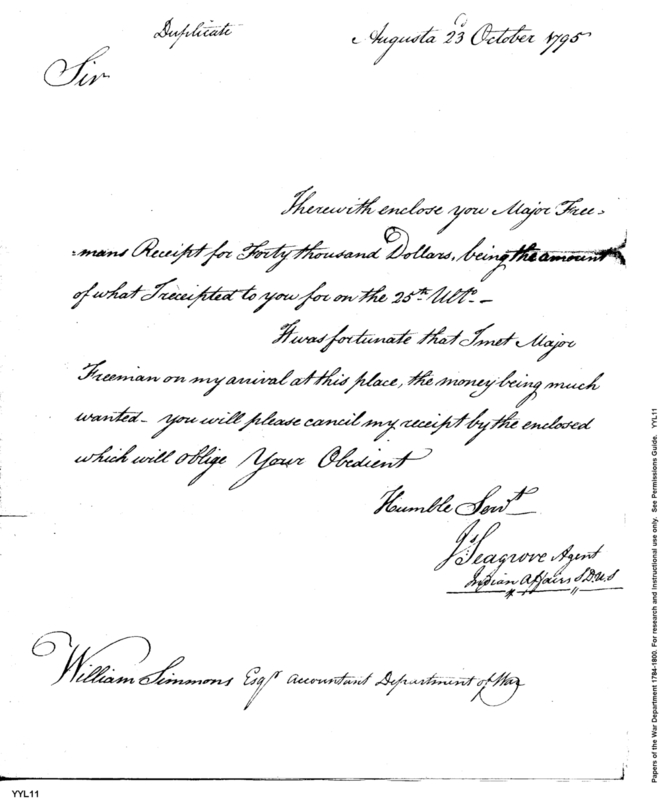 Duplicate
Augusta 23 October 1795
Sir
I herewith enclose you Major Free-
-mans Receipt for Forty thousand Dollars, being the amount
of what I receipted to you for on the 25th Ulto. -
It was fortunate that I met Major
Freeman on my arrival at this place, the money being much
wanted - you will please cancil my receipt by the enclosed
which will oblige Your Obedient
Humble Servt
Js Seagrove Agent
Indian Affairs S.D.U.S
William Simmons Esqr Accountant Department of War
Papers of the War Department 1784-1800. For research and instructional use only. See Permissions Guide. YYL11
YYL11